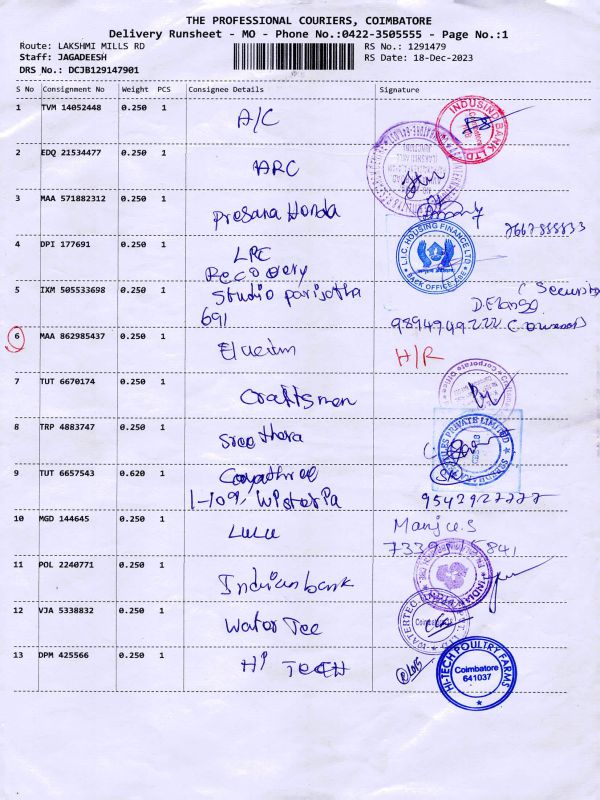 THE PROFESSIONAL COURIERS, COIMBATORE
Delivery Runsheet - MO - Phone No.:0422-3505555 - Page No.:1
Route: LAKSHMI MILLS RD
RS No.: 1291479
Staff: JAGADEESH
RS Date: 18-Dec-2023
DRS No.: DCJB129147901
S No Consignment No Weight PCS Consignee Details Signature
1 TVM 14052448 0.250 1 A/C
INDUSIND BANK LTD.
2 EDQ 21534477 0.250 1 ARC
3 MAA 571882312 0.250 1 Prasana Honda
4 DPI 177691 0.250 1 LRC
Recovery
L.I.C. HOUSING FINANCE LTD
BACK OFFICE, CBE
5 IXM 505533698 0.250 1 Studio parijatha
691
(Security
D.Elango
9894949222
6 MAA 862985437 0.250 1
H/R
7 TUT 6670174 0.250 1 Craftsmen
Corporate Office
8 TRP 4883747 0.250 1 Sree thora
PRIVATE LIMITED
9 TUT 6657543 0.620 1 Gayathree
1-109,
SK
9542927777
10 MGD 144645 0.250 1 LuLu
Manju.S
11 POL 2240771 0.250 1 Indian bank
INDIAN
12 VJA 5338832 0.250 1 Water Tec
WATERTEC
Coimbatore
13 DPM 425566 0.250 1 Hi TECH
HI-TECH POULTRY FARMS
Coimbatore
641037